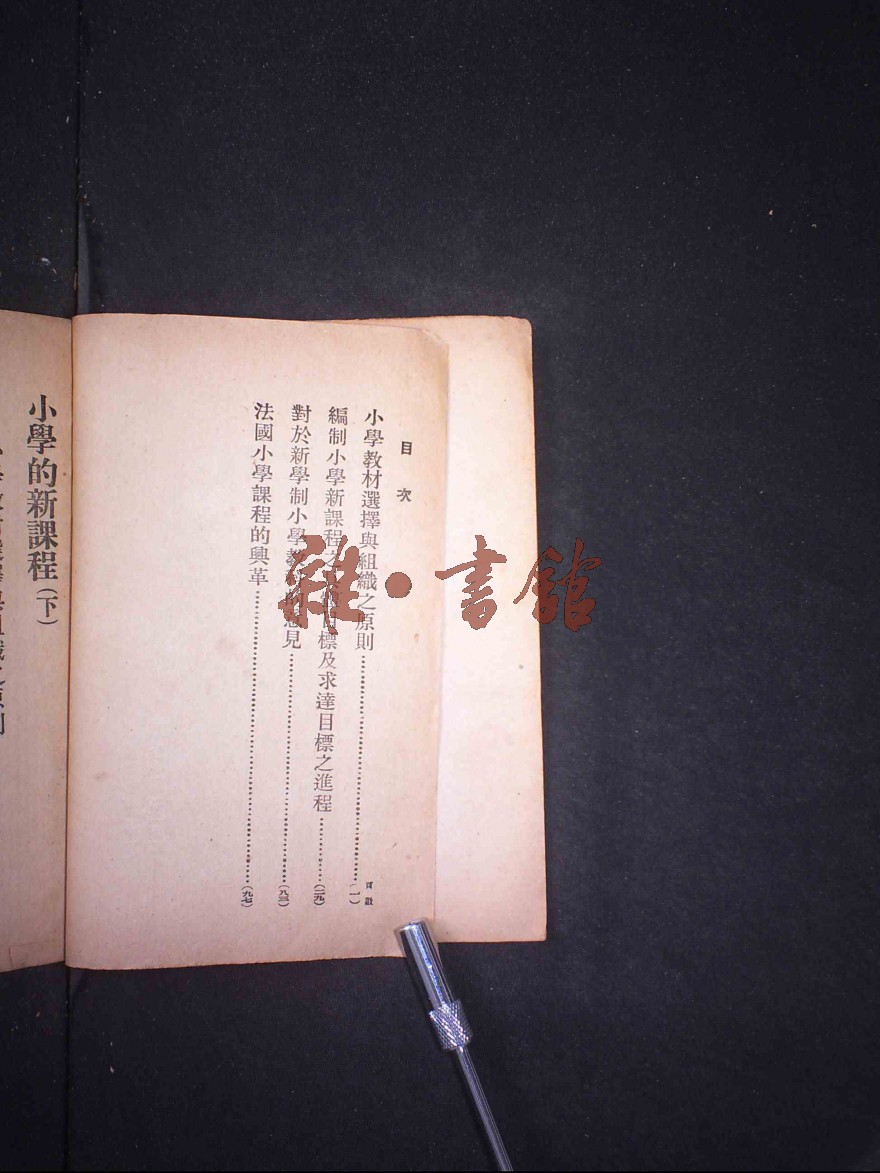 目次
頁數
小學教材選擇與組織之原則……(一)
編制小學新課程之 目標及求達目標之進程……(二九)
對於新學制小學教 意見……(八三)
法國小學課程的興革……(九七)
小學的新課程(下)
雜·書館